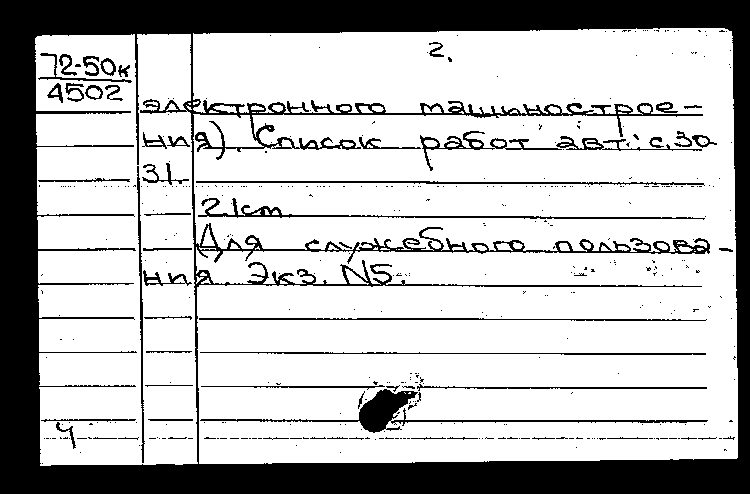 2.
72-50к
4502
электронного машинострое-
ния). Список работ авт.: с. 30
31.
21cm.
Для служебного пользова-
ния. Экз. N5.
ч